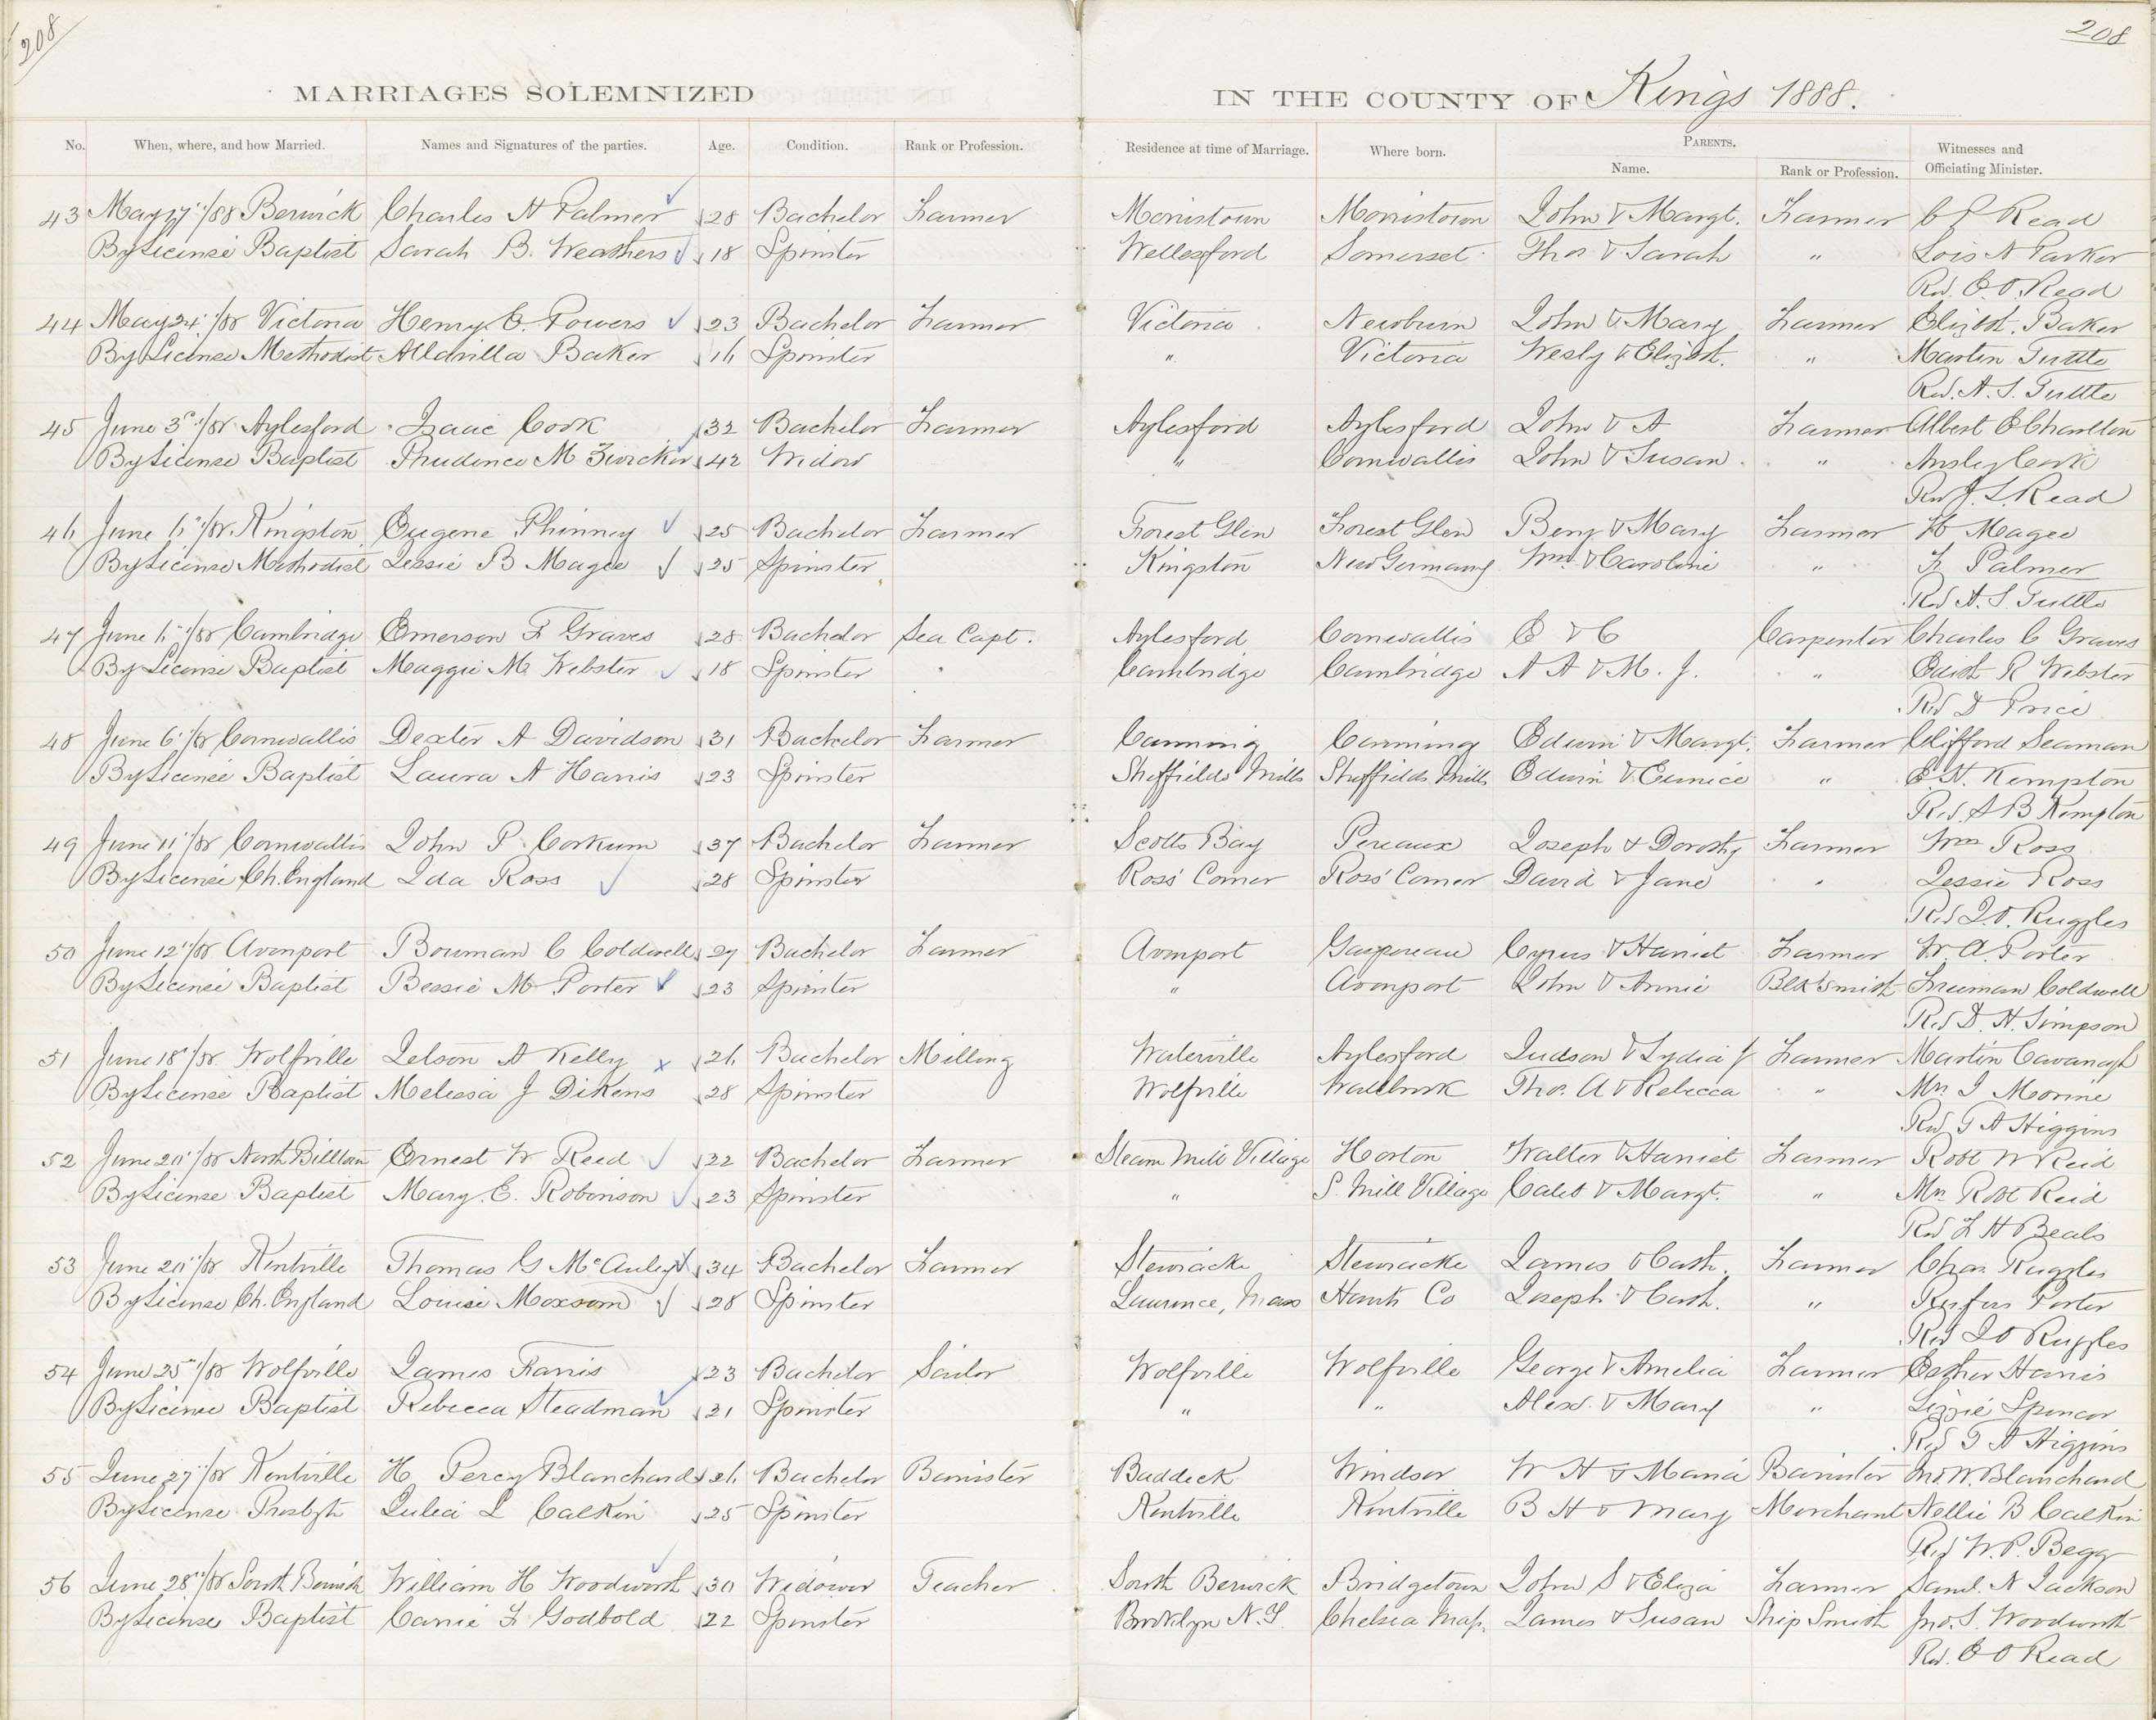 208
208
MARRIAGES SOLEMNIZED IN THE COUNTY OF Kings 1888.
No. When, where, and how Married. Names and Signatures of the parties. Age. Condition. Rank or Profession. Residence at time of Marriage. Where born. PARENTS. Name. Rank or Profession. Witnesses and Officiating Minister.
43 May 17"/88 Berwick Charles N Palmer 28 Bachelor Farmer Morristown Morristown John & Margt. Farmer Read
By License Baptist Sarah B. Weathers 18 Spinster Wellesford Somerset Thos & Sarah " Lois N Parker
Rev. E. O. Read
44 May 24"/88 Victoria Henry E. Powers 23 Bachelor Farmer Victoria Newburn John & Mary Farmer Elizbth. Baker
By License Methodist Baker 16 Spinster " Victoria Wesly & Elizbth. " Martin Tuttle
Rev. A. S. Tuttle
45 June 3"/88 Aylesford Isaac Cook 32 Bachelor Farmer Aylesford Aylesford John & A Farmer Albert E Charlton
By License Baptist Prudence M Zwicker 42 Widow " Cornwallis John & Susan " Ansley Cook
Rev J. L. Read
46 June 6"/88 Kingston Eugene Phinney 25 Bachelor Farmer Forest Glen Forest Glen Benj & Mary Farmer Magee
By License Methodist Jessie B Magee 25 Spinster Kingston New Germany Wm. & Caroline " F Palmer
Rev A. S. Tuttle
47 June 6"/88 Cambridge Emerson F Graves 28 Bachelor Sea Capt. Aylesford Cornwallis E & C Carpenter Charles C Graves
By License Baptist Maggie M Webster 18 Spinster Cambridge Cambridge A A & M. J. " Edith R Webster
Rev D Price
48 June 6"/88 Cornwallis Dexter A Davidson 31 Bachelor Farmer Canning Canning Edwin & Margt. Farmer Clifford Seaman
By License Baptist Laura A Harris 23 Spinster Sheffields Mills Sheffields Mills Edwin & Eunice " E. N. Kempton
Rev. S B Kempton
49 June 11"/88 Cornwallis John P. Corkum 37 Bachelor Farmer Scotts Bay Pereaux Joseph & Dorothy Farmer Wm Ross
By License Ch. England Ida Ross 28 Spinster Ross' Corner Ross' Corner David & Jane " Jessie Ross
Rev J. O. Ruggles
50 June 12"/88 Avonport Bowman C Coldwell 27 Bachelor Farmer Avonport Gaspereau Cyrus & Harriet Farmer W. A. Porter
By License Baptist Bessie M Porter 23 Spinster " Avonport John & Annie Blksmith Freeman Coldwell
Rev D. H. Simpson
51 June 18"/88 Wolfville Kelly 26 Bachelor Milling Waterville Aylesford Judson & Lydia J Farmer Martin Cavanagh
By License Baptist Melissa J Dikens 28 Spinster Wolfville Wallbrook Thos. A & Rebecca " Mrs I Morine
Rev T A Higgins
52 June 20"/88 North Billtown Ernest W Reed 22 Bachelor Farmer Steam Mill Village Horton Walter & Harriet Farmer Robt W Reid
By License Baptist Mary. E. Robinson 23 Spinster " S. Mill Village Caleb & Margt. " Mrs Robt Reid
Rev F H Beals
53 June 20"/88 Kentville Thomas G McAuley 34 Bachelor Farmer Stewiacke Stewiacke James & Cath. Farmer Chas Ruggles
By License Ch. England Louise Moxsom 28 Spinster Laurence, Mass Hants Co Joseph & Cath. " Rufus Porter
Rev J O Ruggles
54 June 25"/88 Wolfville James Farris 23 Bachelor Sailor Wolfville Wolfville George & Amelia Farmer Esther Harris
By License Baptist Rebecca Steadman 21 Spinster " " Alexd. & Mary " Lizzie Spencer
Rev T A Higgins
55 June 27"/88 Kentville H. Percy Blanchard 26 Bachelor Barrister Baddeck Windsor W H & Maria Barrister Jno W. Blanchard
By License Presbyth Julia L Calkin 25 Spinster Kentville Kentville B H & Mary Merchant Nellie B Calkin
Rev W. P. Begg
56 June 28"/88 South Berwick William H Woodworth 30 Widower Teacher South Berwick Bridgetown John S & Eliza Farmer Saml. N Jackson
By License Baptist Carrie F Godbold 22 Spinster Brooklyn N.S. Chelsea Mass. James & Susan Ship Smith Jno. S. Woodworth
Rev. E O Read